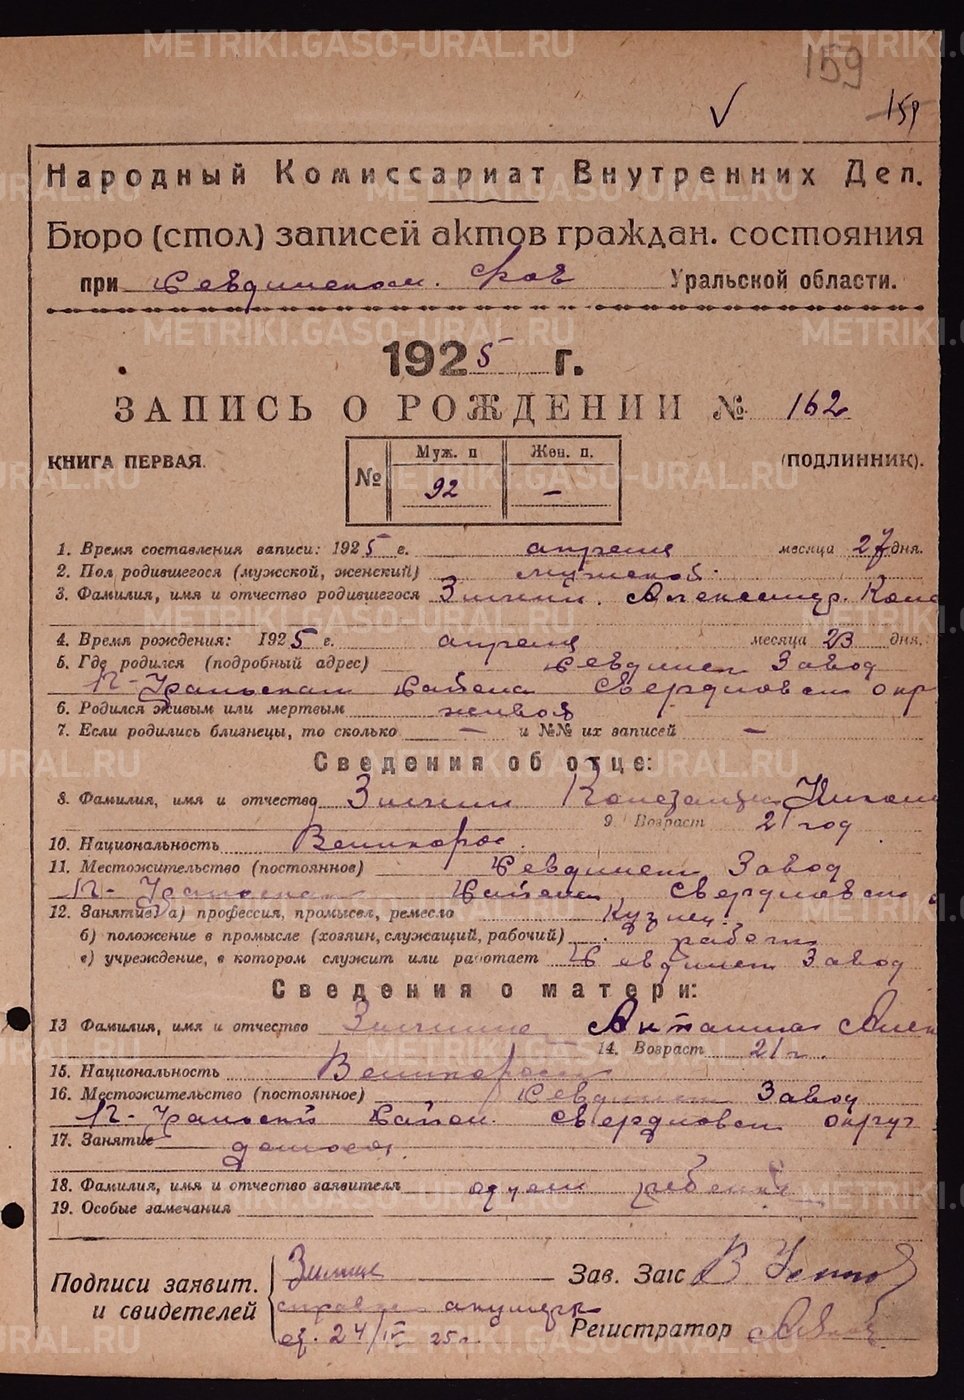 159
159
Народный Комиссариат Внутренних Дел.
Бюро (стол) записей актов граждан. состояния
при Ревдинском Уральской области.
1925 г.
ЗАПИСЬ О РОЖДЕНИИ № 162
КНИГА ПЕРВАЯ. (ПОДЛИННИК).
№ Муж. п Жен. п.
92 —
1. Время составления записи: 1925 г. апреля месяца 27 дня.
2. Пол родившегося (мужской, женский) мужской
3. Фамилия, имя и отчество родившегося Александр Конс
4. Время рождения: 1925 г. апреля месяца 23 дня.
5. Где родился (подробный адрес) Ревдинск Завод
П-Уральском Района Свердловск окр
6. Родился живым или мертвым живой
7. Если родились близнецы, то сколько — и №№ их записей —
Сведения об отце:
8. Фамилия, имя и отчество
9. Возраст 21 год
10. Национальность Великорос
11. Местожительство (постоянное) Ревдинск Завод
П-Уральском Район Свердловск
12. Занятие: а) профессия, промысел, ремесло Кузнец
б) положение в промысле (хозяин, служащий, рабочий) рабочи
в) учреждение, в котором служит или работает Ревдинск Завод
Сведения о матери:
13 Фамилия, имя и отчество
14. Возраст 21 г.
15. Национальность Великоросс
16. Местожительство (постоянное) Ревдинск Завод
П-Уральский Район Свердловск округ
17. Занятие домохоз
18. Фамилия, имя и отчество заявителя ребенка
19. Особые замечания
Подписи заявит. и свидетелей
Зав. Загс
справка акушерк
от 24/IV 25 г.
Регистратор
METRIKI.GASO-URAL.RU